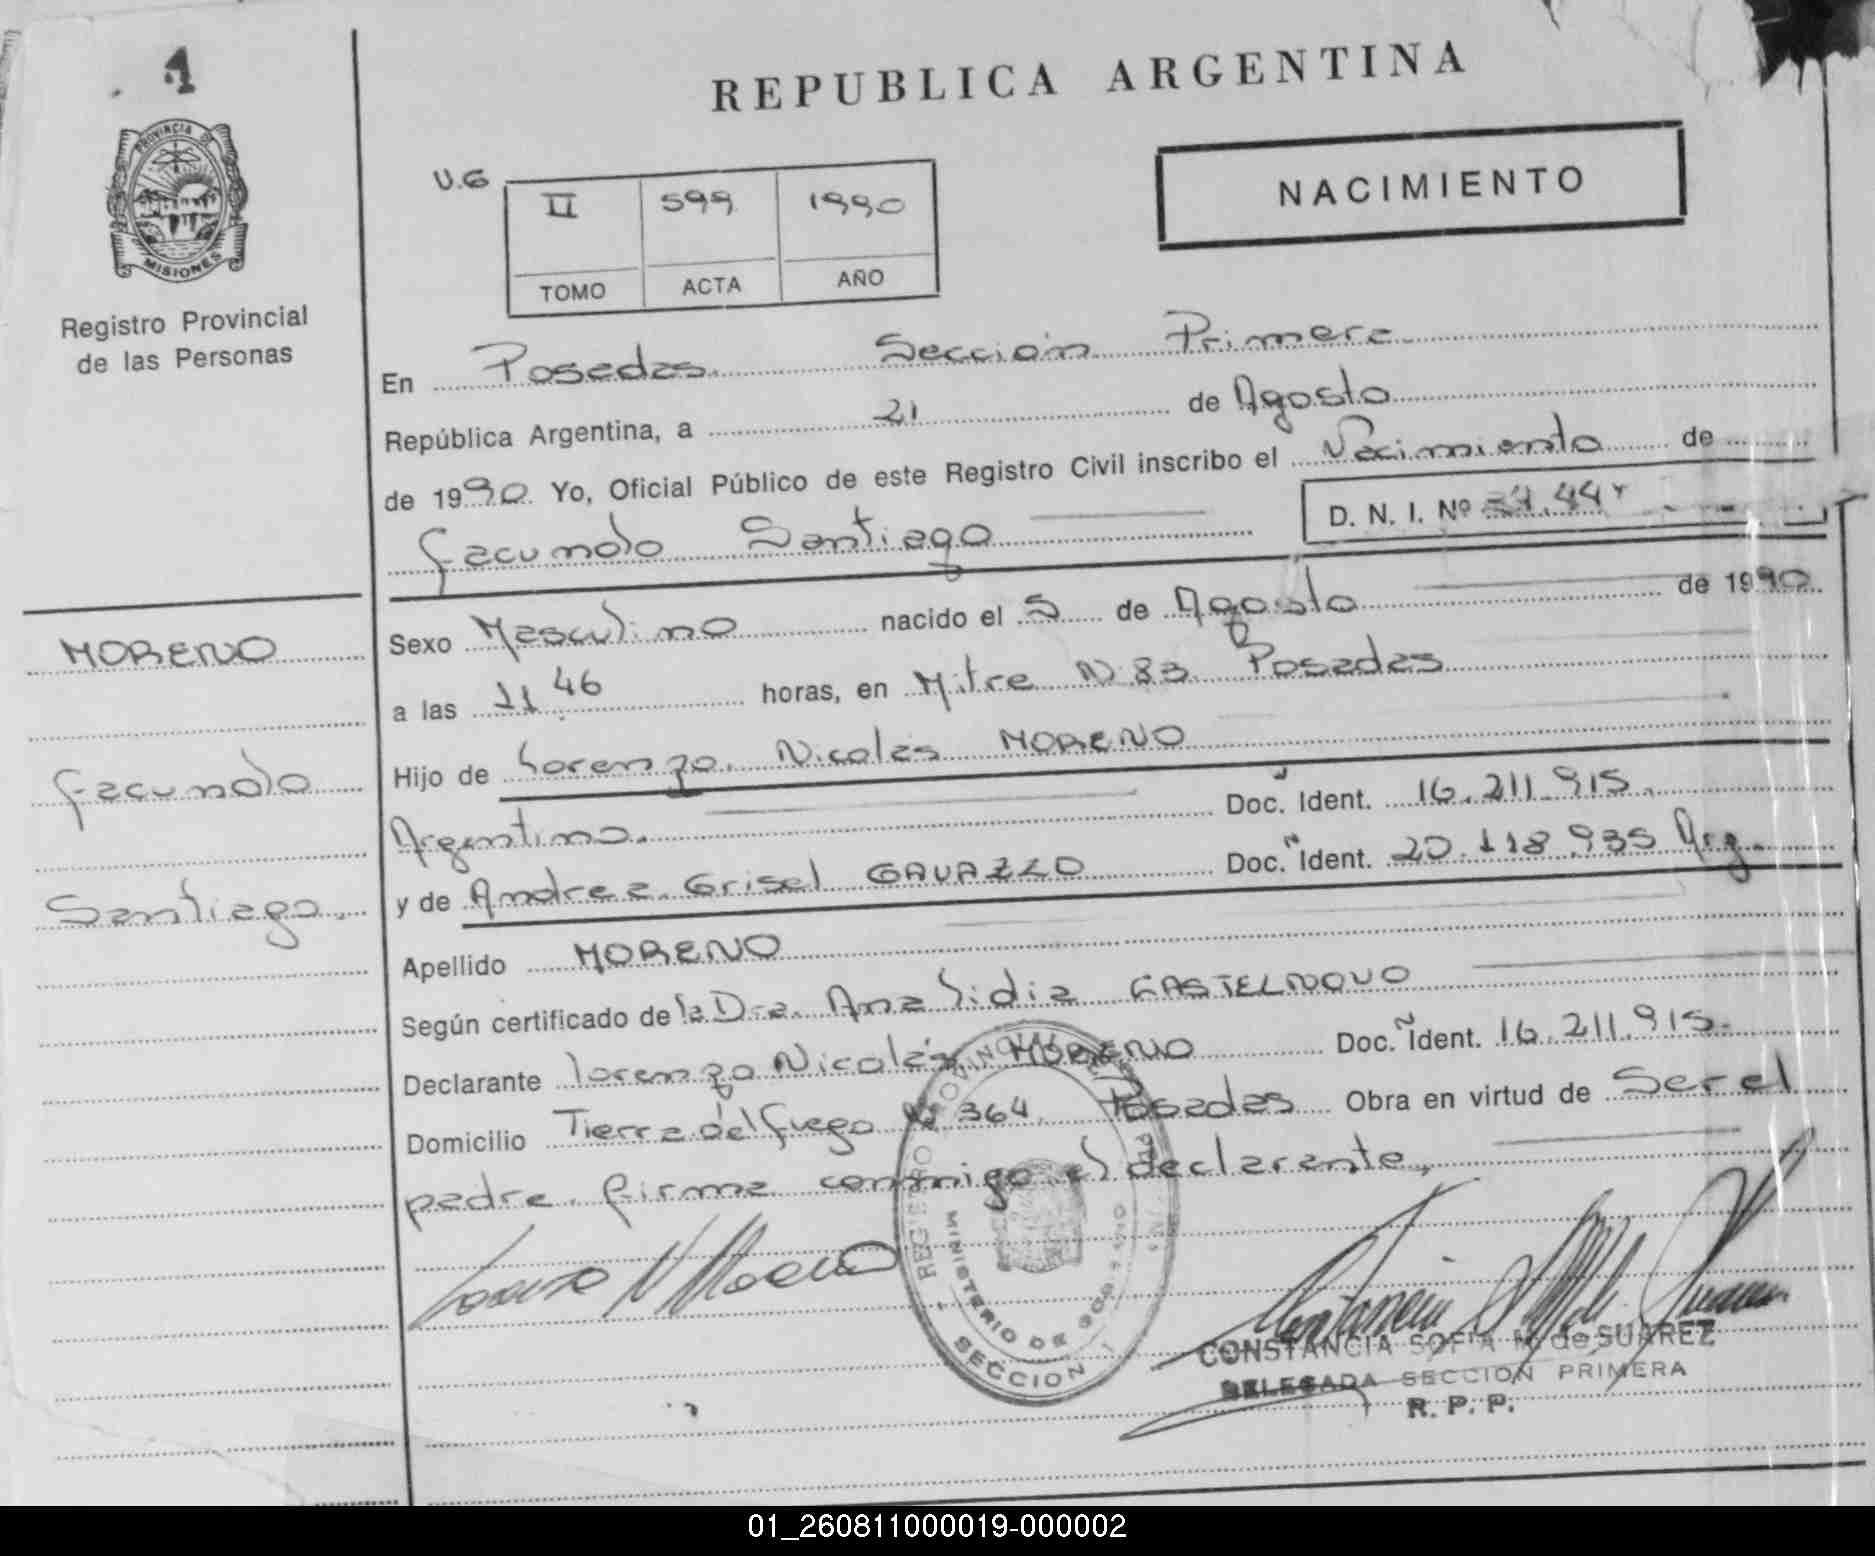 1
REPUBLICA ARGENTINA
PROVINCIA DE
MISIONES
Registro Provincial
de las Personas
U.G
II 599 1990
TOMO ACTA AÑO
NACIMIENTO
En Posadas Sección Primera
República Argentina, a 21 de Agosto
de 1990 Yo, Oficial Público de este Registro Civil inscribo el Nacimiento de
Facundo Santiago
D. N. I. Nº
Sexo Masculino nacido el 5 de Agosto de 1990
a las 11.46 horas, en Mitre N 83 Posadas
Hijo de Lorenzo Nicolás MORENO
Argentino. Doc. Ident. 16.211.915.
y de Andrea Grisel GAVAZZO Doc. Ident. 20.118.935 Arg.
Apellido MORENO
Según certificado de la Dra. Ana Lidia CASTELNOVO
Declarante Lorenzo Nicolás MORENO Doc. Ident. 16.211.915.
Domicilio Tierra del Fuego Nº 364 Posadas Obra en virtud de Ser el
padre. firma conmigo el declarante,
MORENO
Facundo
Santiago.
REGISTRO PROVINCIAL DE
MINISTERIO DE GOBIERNO
SECCION 1
CONSTANCIA SOFIA M. de SUAREZ
DELEGADA SECCION PRIMERA
R. P. P.
01_260811000019-000002